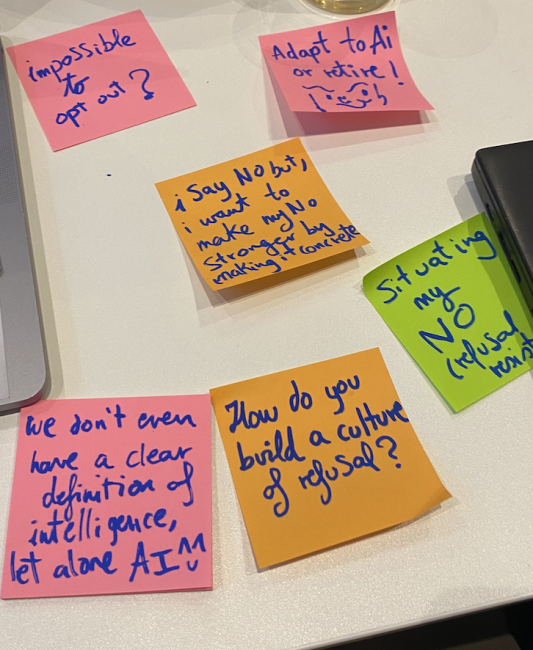 impossible
to
opt out?
Adapt to Ai
or retire!
i say NO but,
i want to
make my NO
stronger by
making it concrete
Situating
my
NO
(refusal
resist
We don't even
have a clear
definition of
intelligence,
let alone AI
How do you
build a culture
of refusal?